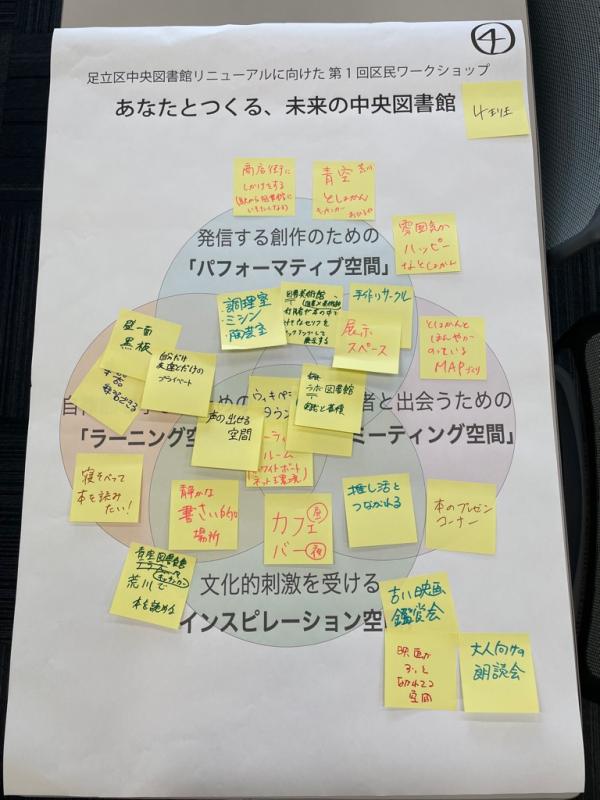 ④
足立区中央図書館リニューアルに向けた 第1回区民ワークショップ
あなたとつくる、未来の中央図書館
4班
商店街に
しかけをする
青空
としょかん
キッチンカー
雰囲気が
ハッピー
なとしょかん
発信する創作のための
「パフォーマティブ空間」
・調理室
・ミシン
・陶芸室
図書美術館
手作りサークル
展示
スペース
としょかんと
ほんやが
のっている
MAPづくり
壁一面
黒板
自分だけ
友達とだけの
プライベート
声の出せる
空間
ウィキペ
タウン
ルーム
(ホワイトボード
ネット環境)
者と出会うための
「ラーニング空
ミーティング空間」
寝そべって
本を読みたい!
静かな
書さい的な
場所
カフェ 昼
バー 夜
推し活と
つながれる
本のプレゼン
コーナー
青空図書館
テラス
荒川で
本を読める
文化的刺激を受ける
インスピレーション空
古い映画
鑑賞会
映画が
ずっと
ながれてる
空間
大人向けの
朗読会